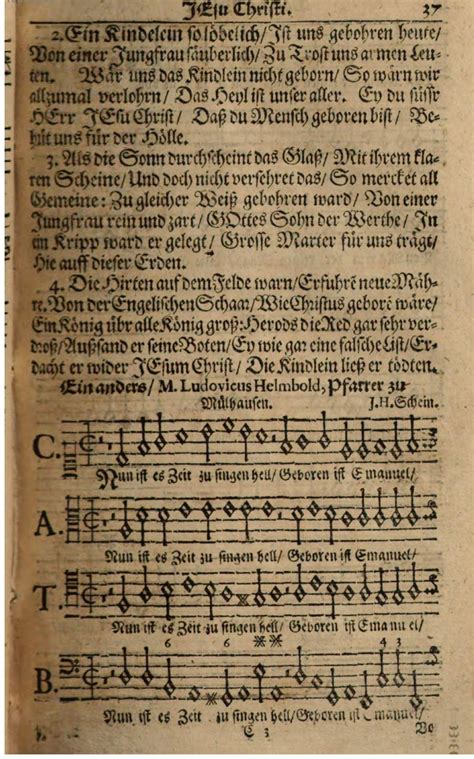 JEsu Christi. 37
2. Ein Kindelein so löbelich/ Ist uns gebohren heute/
Von einer Jungfrau säuberlich/ Zu Trost uns armen Leu-
ten. Wär uns das Kindlein nicht geborn/ So wärn wir
allzumal verlohrn/ Das Heyl ist unser aller. Ey du süssr
HErr JEsu Christ/ Daß du Mensch geboren bist/ Be-
hüt uns für der Hölle.
3. Als die Sonn durchscheint das Glaß/ Mit ihrem kla-
ren Scheine/ Und doch nicht versehret das/ So mercket all
Gemeine: Zu gleicher Weiß gebohren ward/ Von einer
Jungfrau rein und zart/ GOttes Sohn der Werthe/ In
ein Kripp ward er gelegt/ Grosse Marter für uns trägt/
Hie auff dieser Erden.
4. Die Hirten auf dem Felde warn/ Erfuhrē neue Mäh-
re. Von der Engelischen Schaar/ Wie Christus geborē wäre/
Ein König übr alle König groß: Herods die Red gar sehr ver-
droß/ Außsand er seine Boten/ Ey wie gar eine falsche List/ Er-
dacht er wider JEsum Christ/ Die Kindlein ließ er tödten.
Ein anders/ M. Ludovicus Helmbold, Pfarrer zu
Mülhausen. J.H. Schein.
C.
Nun ist es Zeit zu singen hell/ Geboren ist Emanuel/
A.
Nun ist es Zeit zu singen hell/ Geboren ist Emanuel/
T.
Nun ist es Zeit zu singen hell/ Geboren ist Emanuel/
6 6 4 3
B.
Nun ist es Zeit zu singen hell/ Geboren ist Emanuel/
C 3 Vo